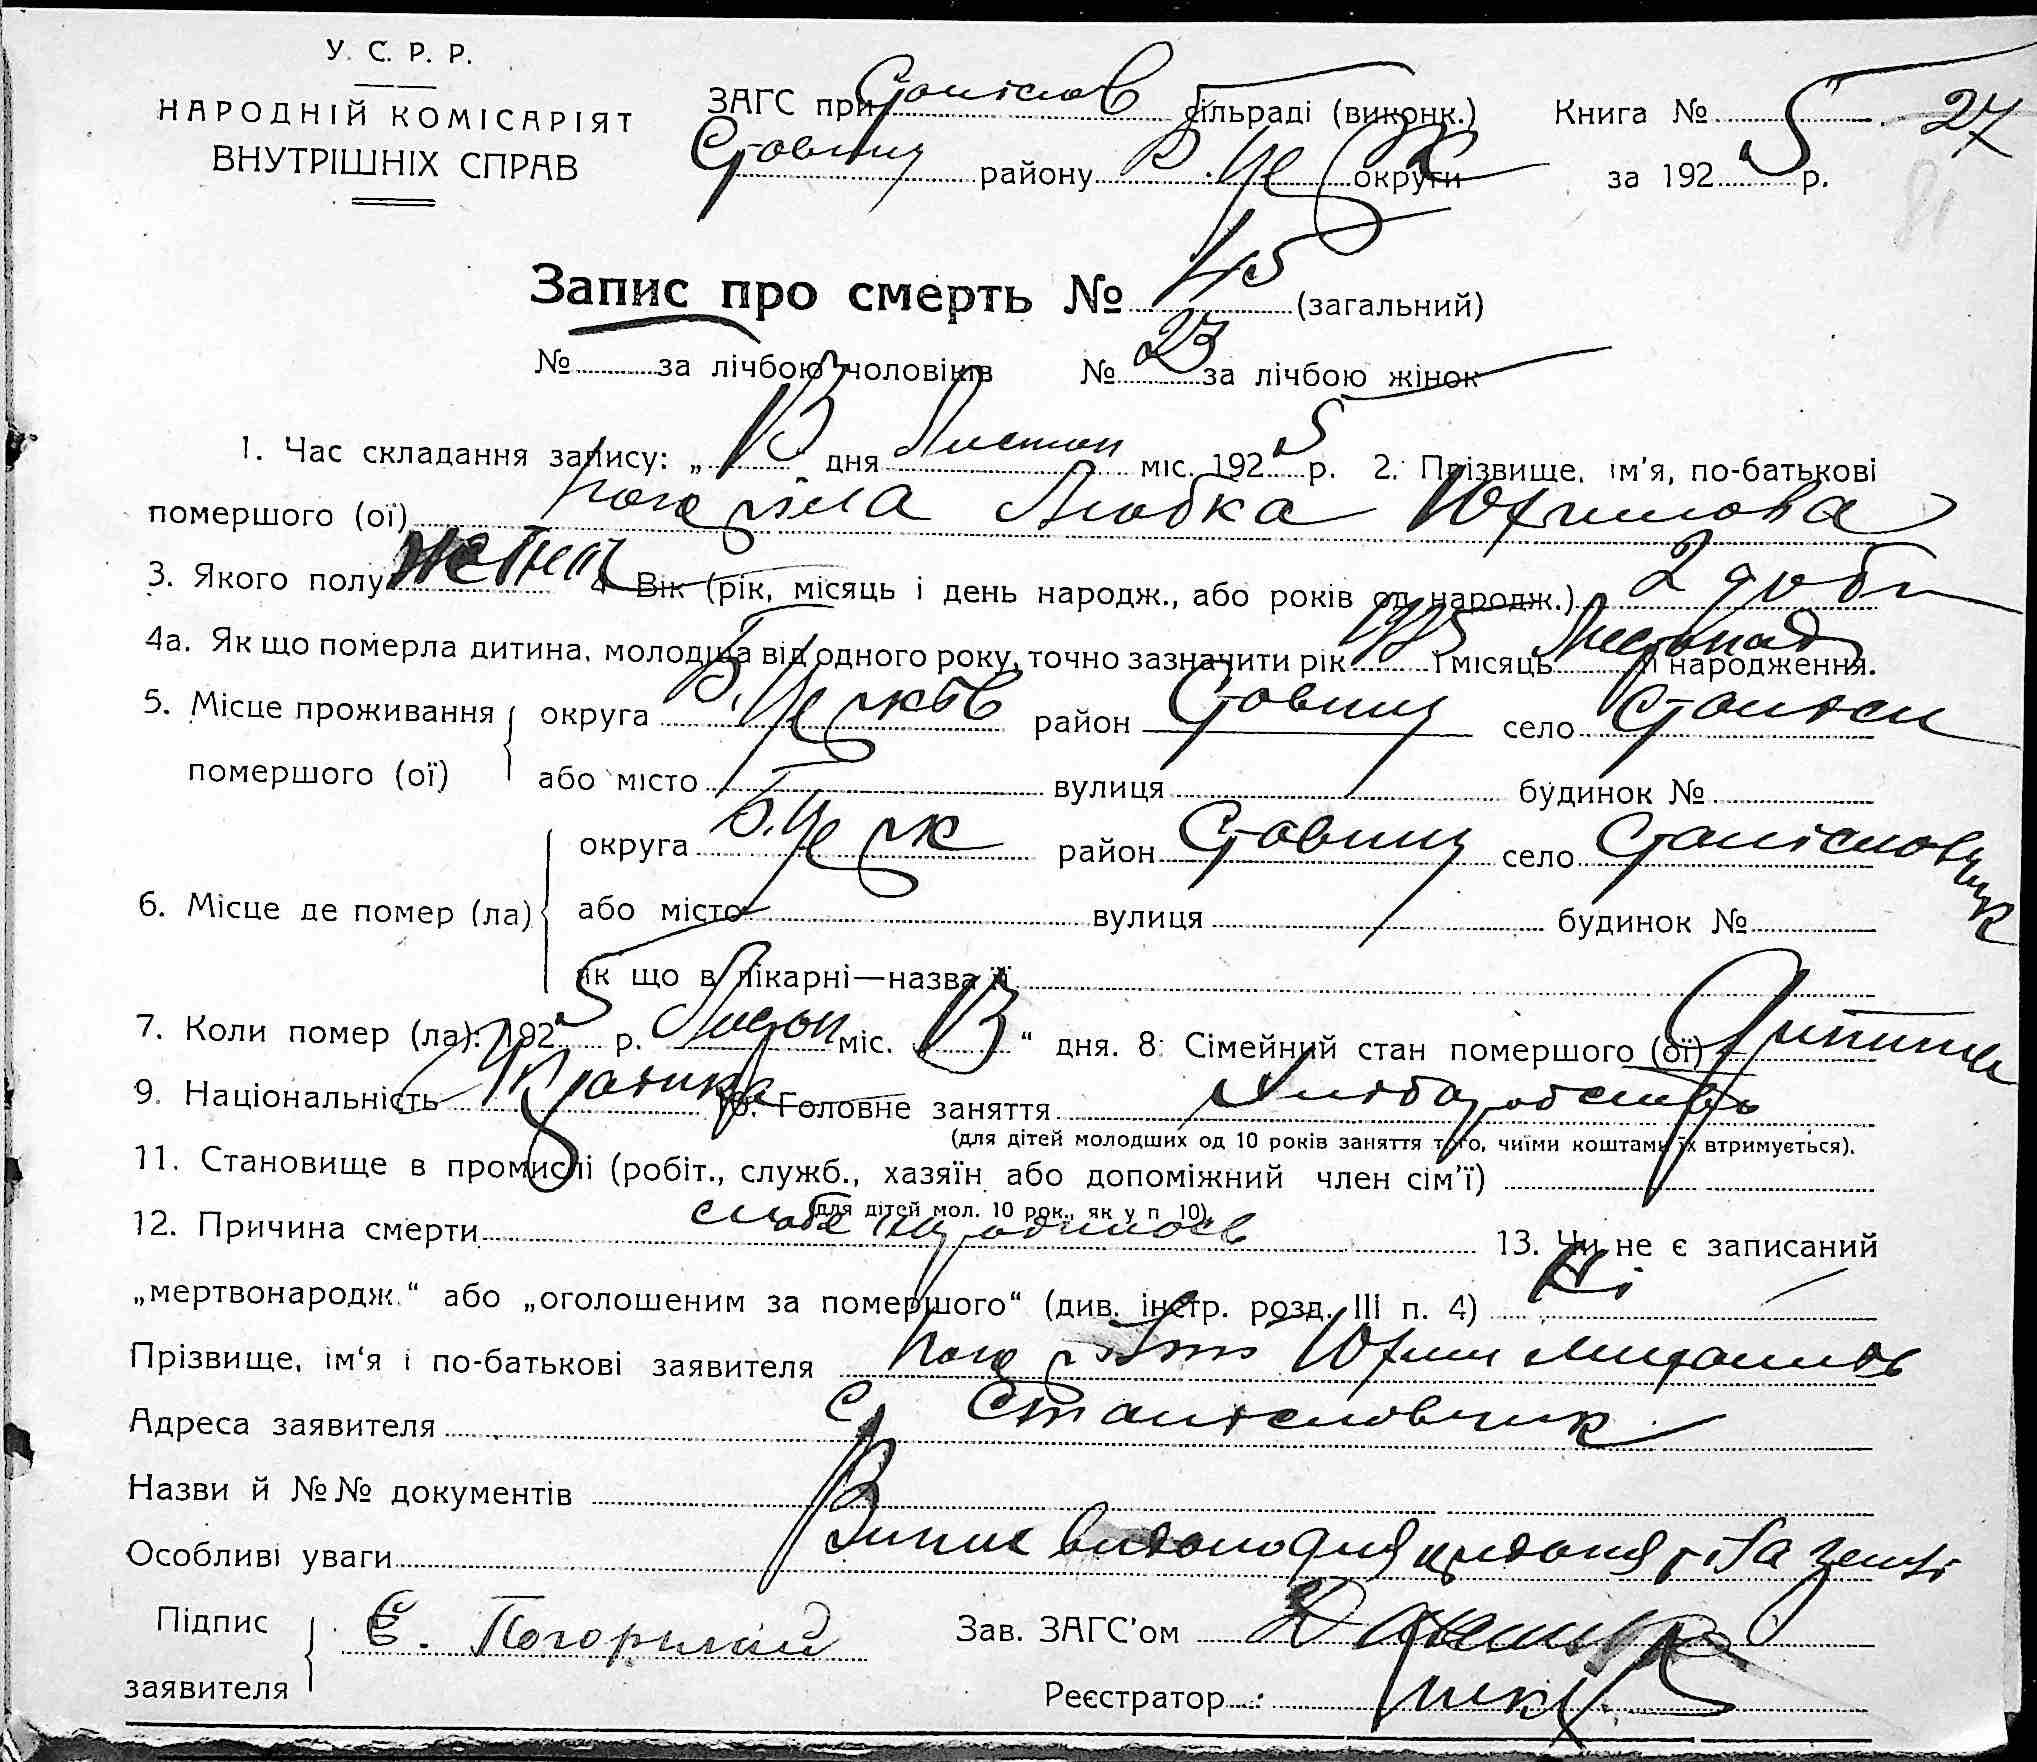 У. С. Р. Р.
НАРОДНІЙ КОМІСАРІЯТ
ВНУТРІШНІХ СПРАВ
ЗАГС при Станіслав сільраді (виконк.) Книга № 5 27
Ставищ району Б. Церк округи за 1925 р.
Запис про смерть № 45 (загальний)
№ за лічбою чоловіків № 23 за лічбою жінок
1. Час складання запису: „13 дня Листоп міс. 1925 р. 2. Прізвище, ім'я, по-батькові
помершого (ої) Погоріла Любка Юхимова
3. Якого полу 4 Вік (рік, місяць і день народж., або років од народж.) 2 доби
4а. Як що померла дитина, молодша від одного року, точно зазначити рік 1925 і місяць Листопад її народження.
5. Місце проживання округа Б. Церків район Ставищ село Станісл
помершого (ої) або місто вулиця будинок №
округа Б. Церк район Ставищ село Станіславчик
6. Місце де помер (ла) або місто вулиця будинок №
як що в лікарні—назва її
7. Коли помер (ла): 1925 р. Листоп міс. „13“ дня. 8. Сімейний стан помершого (ої) Дитина
9. Національність Українка 10. Головне заняття Хліборобство
(для дітей молодших од 10 років заняття того, чиїми коштами їх втримується).
11. Становище в промислі (робіт., служб., хазяїн або допоміжний член сім'ї)
(для дітей мол. 10 рок., як у п 10).
12. Причина смерти слабе народилось 13. Чи не є записаний
„мертвонародж.“ або „оголошеним за помершого“ (див. інстр. розд. III п. 4) Ні
Прізвище, ім'я і по-батькові заявителя Юхим
Адреса заявителя с. Станіславчик
Назви й №№ документів
Особливі уваги Випис видано для придання тіла землі
Підпис Є. Погорілий Зав. ЗАГС'ом
заявителя Реєстратор